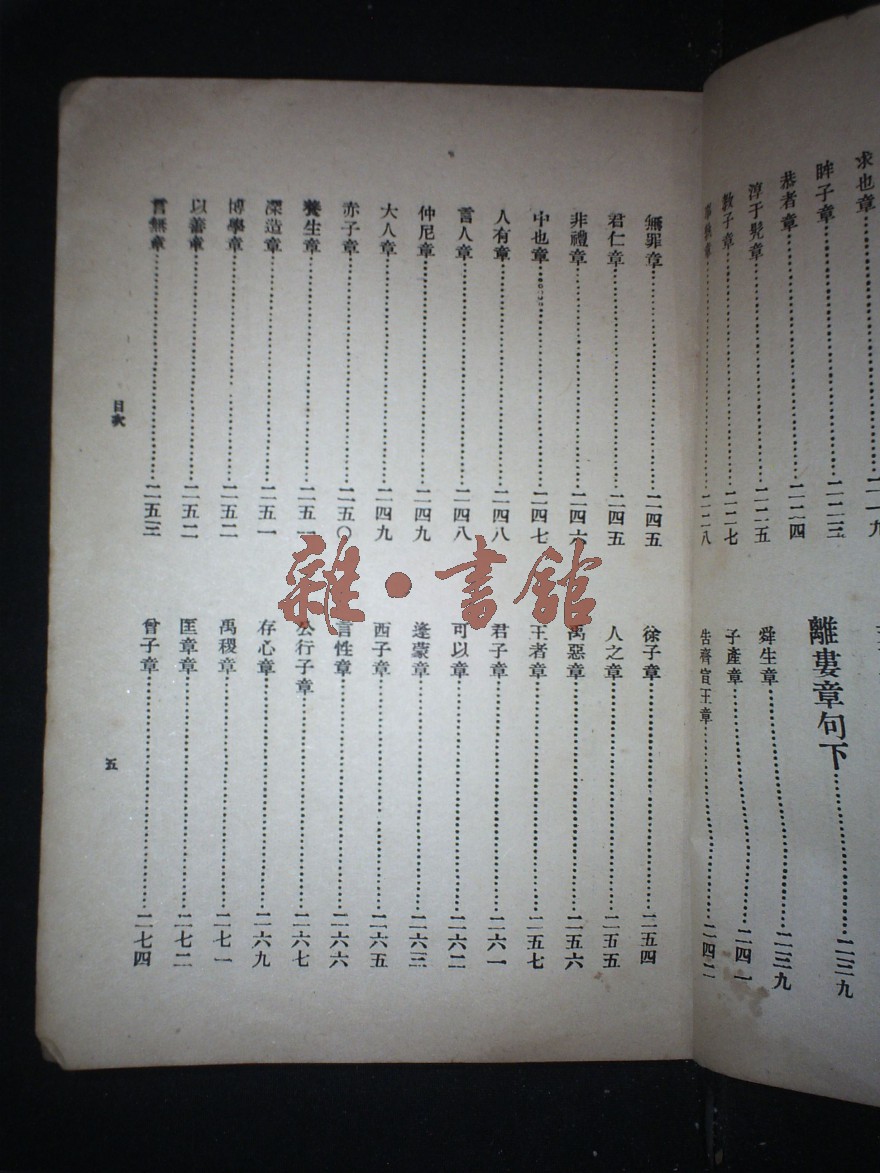 求也章……二一九
眸子章……二二三
恭者章……二二四
淳于髡章……二二五
教子章……二二七
章……二二八
離婁章句下……二三九
舜生章……二三九
子產章……二四一
告齊宣王章……二四二
無罪章……二四五
君仁章……二四五
非禮章……二四六
中也章……二四七
人有章……二四八
言人章……二四八
仲尼章……二四九
大人章……二四九
赤子章……二五〇
養生章……二五一
深造章……二五一
博學章……二五二
以善章……二五二
言無章……二五三
徐子章……二五四
人之章……二五五
禹惡章……二五六
王者章……二五七
君子章……二六一
可以章……二六二
逄蒙章……二六三
西子章……二六五
言性章……二六六
公行子章……二六七
存心章……二六九
禹稷章……二七一
匡章章……二七二
曾子章……二七四
目次
五
雜·書館